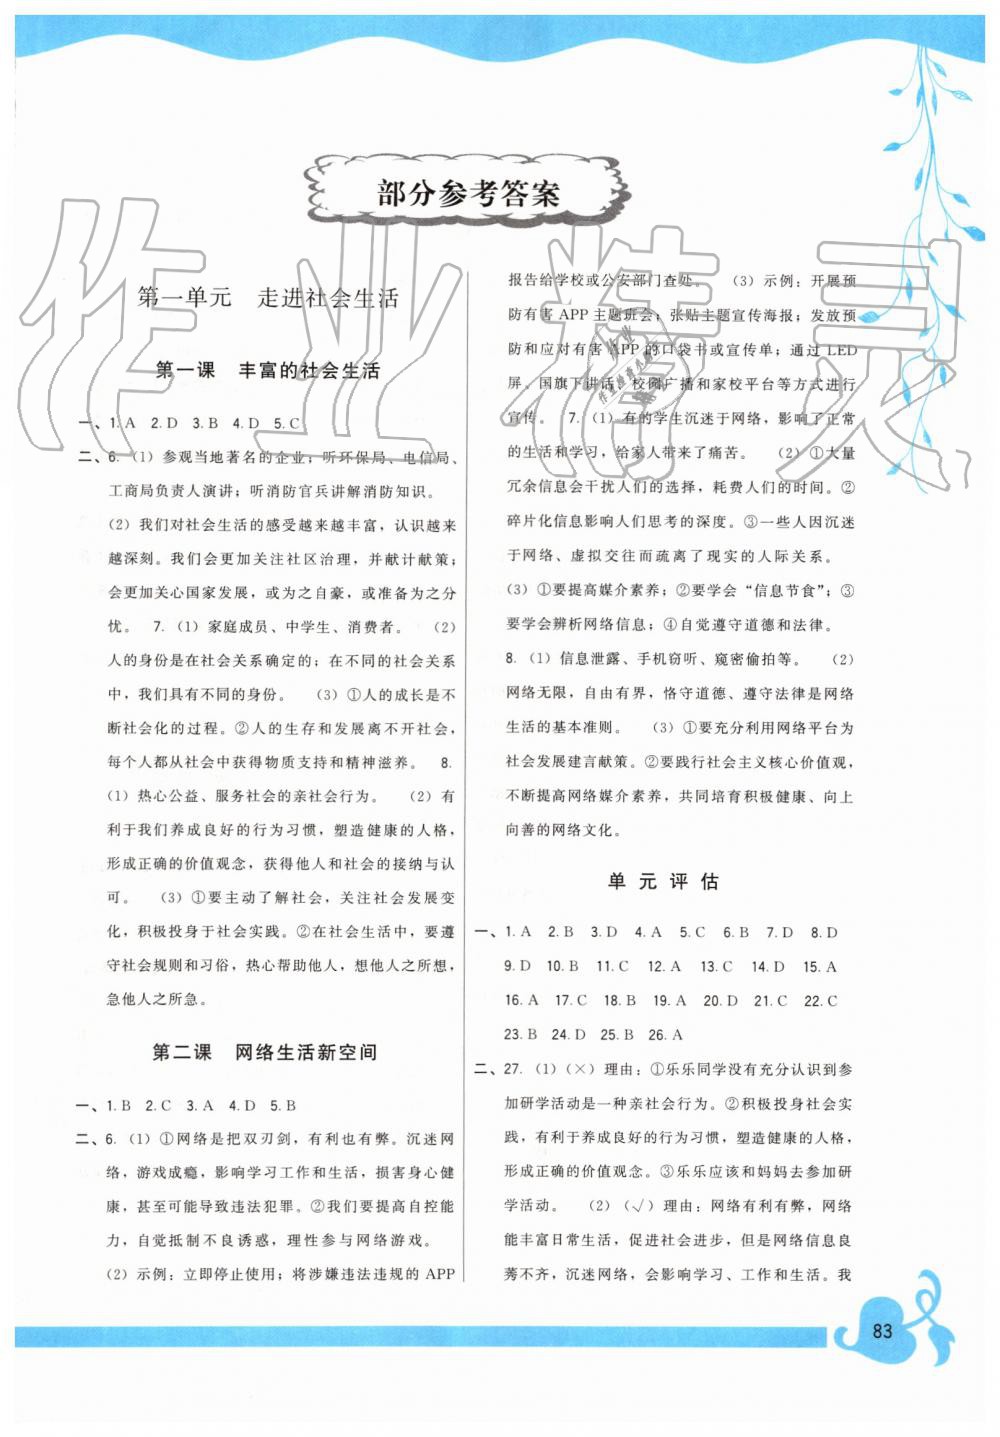 部分参考答案
第一单元　走进社会生活
第一课　丰富的社会生活
一、1. A　2. D　3. B　4. D　5. C
二、6.（1）参观当地著名的企业；听环保局、电信局、
工商局负责人演讲；听消防官兵讲解消防知识。
（2）我们对社会生活的感受越来越丰富，认识越来
越深刻。我们会更加关注社区治理，并献计献策；
会更加关心国家发展，或为之自豪，或准备为之分
忧。　7.（1）家庭成员、中学生、消费者。　（2）
人的身份是在社会关系确定的；在不同的社会关系
中，我们具有不同的身份。　（3）①人的成长是不
断社会化的过程。②人的生存和发展离不开社会，
每个人都从社会中获得物质支持和精神滋养。　8.
（1）热心公益、服务社会的亲社会行为。　（2）有
利于我们养成良好的行为习惯，塑造健康的人格，
形成正确的价值观念，获得他人和社会的接纳与认
可。　（3）①要主动了解社会，关注社会发展变
化，积极投身于社会实践。②在社会生活中，要遵
守社会规则和习俗，热心帮助他人，想他人之所想，
急他人之所急。
第二课　网络生活新空间
一、1. B　2. C　3. A　4. D　5. B
二、6.（1）①网络是把双刃剑，有利也有弊。沉迷网
络，游戏成瘾，影响学习工作和生活，损害身心健
康，甚至可能导致违法犯罪。②我们要提高自控能
力，自觉抵制不良诱惑，理性参与网络游戏。
（2）示例：立即停止使用；将涉嫌违法违规的 APP
报告给学校或公安部门查处。　（3）示例：开展预
防有害 APP 主题班会；张贴主题宣传海报；发放预
防和应对有害 APP 的口袋书或宣传单；通过 LED
屏、国旗下讲话、校园广播和家校平台等方式进行
宣传。　7.（1）有的学生沉迷于网络，影响了正常
的生活和学习，给家人带来了痛苦。　（2）①大量
冗余信息会干扰人们的选择，耗费人们的时间。②
碎片化信息影响人们思考的深度。③一些人因沉迷
于网络、虚拟交往而疏离了现实的人际关系。
（3）①要提高媒介素养；②要学会“信息节食”；③
要学会辨析网络信息；④自觉遵守道德和法律。
8.（1）信息泄露、手机窃听、窥密偷拍等。　（2）
网络无限，自由有界，恪守道德、遵守法律是网络
生活的基本准则。　（3）①要充分利用网络平台为
社会发展建言献策。②要践行社会主义核心价值观，
不断提高网络媒介素养，共同培育积极健康、向上
向善的网络文化。
单元评估
一、1. A　2. B　3. D　4. A　5. C　6. B　7. D　8. D
9. D　10. B　11. C　12. A　13. C　14. D　15. A
16. A　17. C　18. B　19. A　20. D　21. C　22. C
23. B　24. D　25. B　26. A
二、27.（1）（×）理由：①乐乐同学没有充分认识到参
加研学活动是一种亲社会行为。②积极投身社会实
践，有利于养成良好的行为习惯，塑造健康的人格，
形成正确的价值观念。③乐乐应该和妈妈去参加研
学活动。　（2）（√）理由：网络有利有弊，网络
能丰富日常生活，促进社会进步，但是网络信息良
莠不齐，沉迷网络，会影响学习、工作和生活。我
83
作业精灵